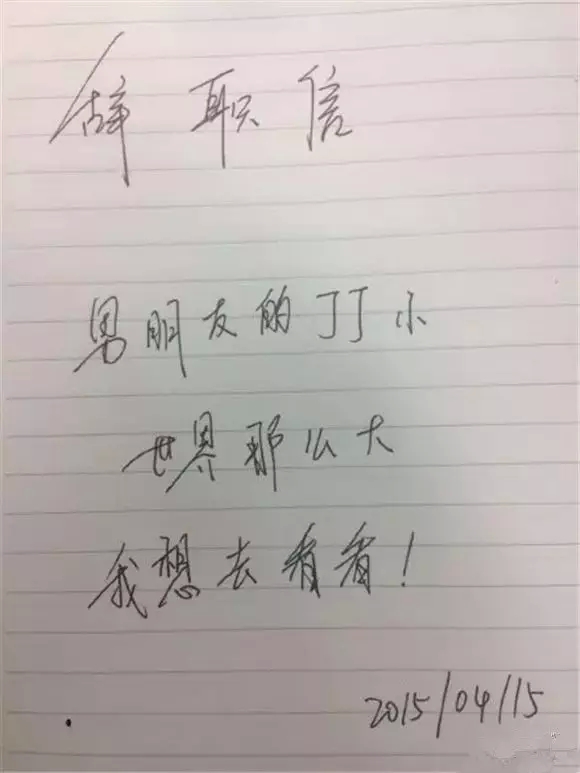 辞职信
男朋友的丁丁小
世界那么大
我想去看看!
2015/04/15